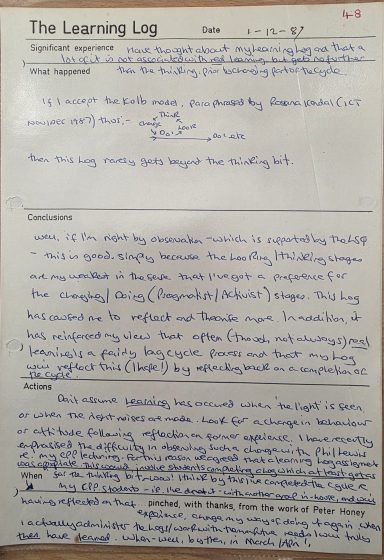 48
The Learning Log Date 1-12-87
Significant experience Have thought about my learning log and that a
lot of it is not associated with real learning but gets no further
What happened than the thinking, prior to changing part of the cycle.
If I accept the Kolb model, paraphrased by Roxana (ICT
Nov/Dec 1987) thus:-
Think
change Look
Do Do etc
then this log rarely gets beyond the thinking bit.
Conclusions
Well, if I'm right by observation - which is supported by the LSQ
- this is good. Simply because the Looking/Thinking stages
are my weakest in the sense that I've got a preference for
the changing/Doing (Pragmatist/Activist) stages. This log
has caused me to reflect and theorise more. In addition, it
has reinforced my view that often (though not always) real
learning is a fairly lag cycle process and that my log
will reflect this (I hope!) by reflecting back on a completion of
the cycle.
Actions
Don't assume learning has occurred when 'the light' is seen
or when the right noises are made. Look for a change in behaviour
or attitude following reflection on former experience. I have recently
emphasised the difficulty in observing such a change with Phil Lewis
re: my EPP lecturing. For this reason we agreed that a learning log assignment
was appropriate this would involve students completing a log which at least gets as
When far as the thinking bit - wow! I think by this I've completed the cycle re
my EPP students - ie. I've done it - with another group in-house, and was
having reflected on that pinched, with thanks, from the work of Peter Honey
experience, change my way of doing it again when
I actually administer the logs/work with them
then have learned. When - well, by then, in March/April!,